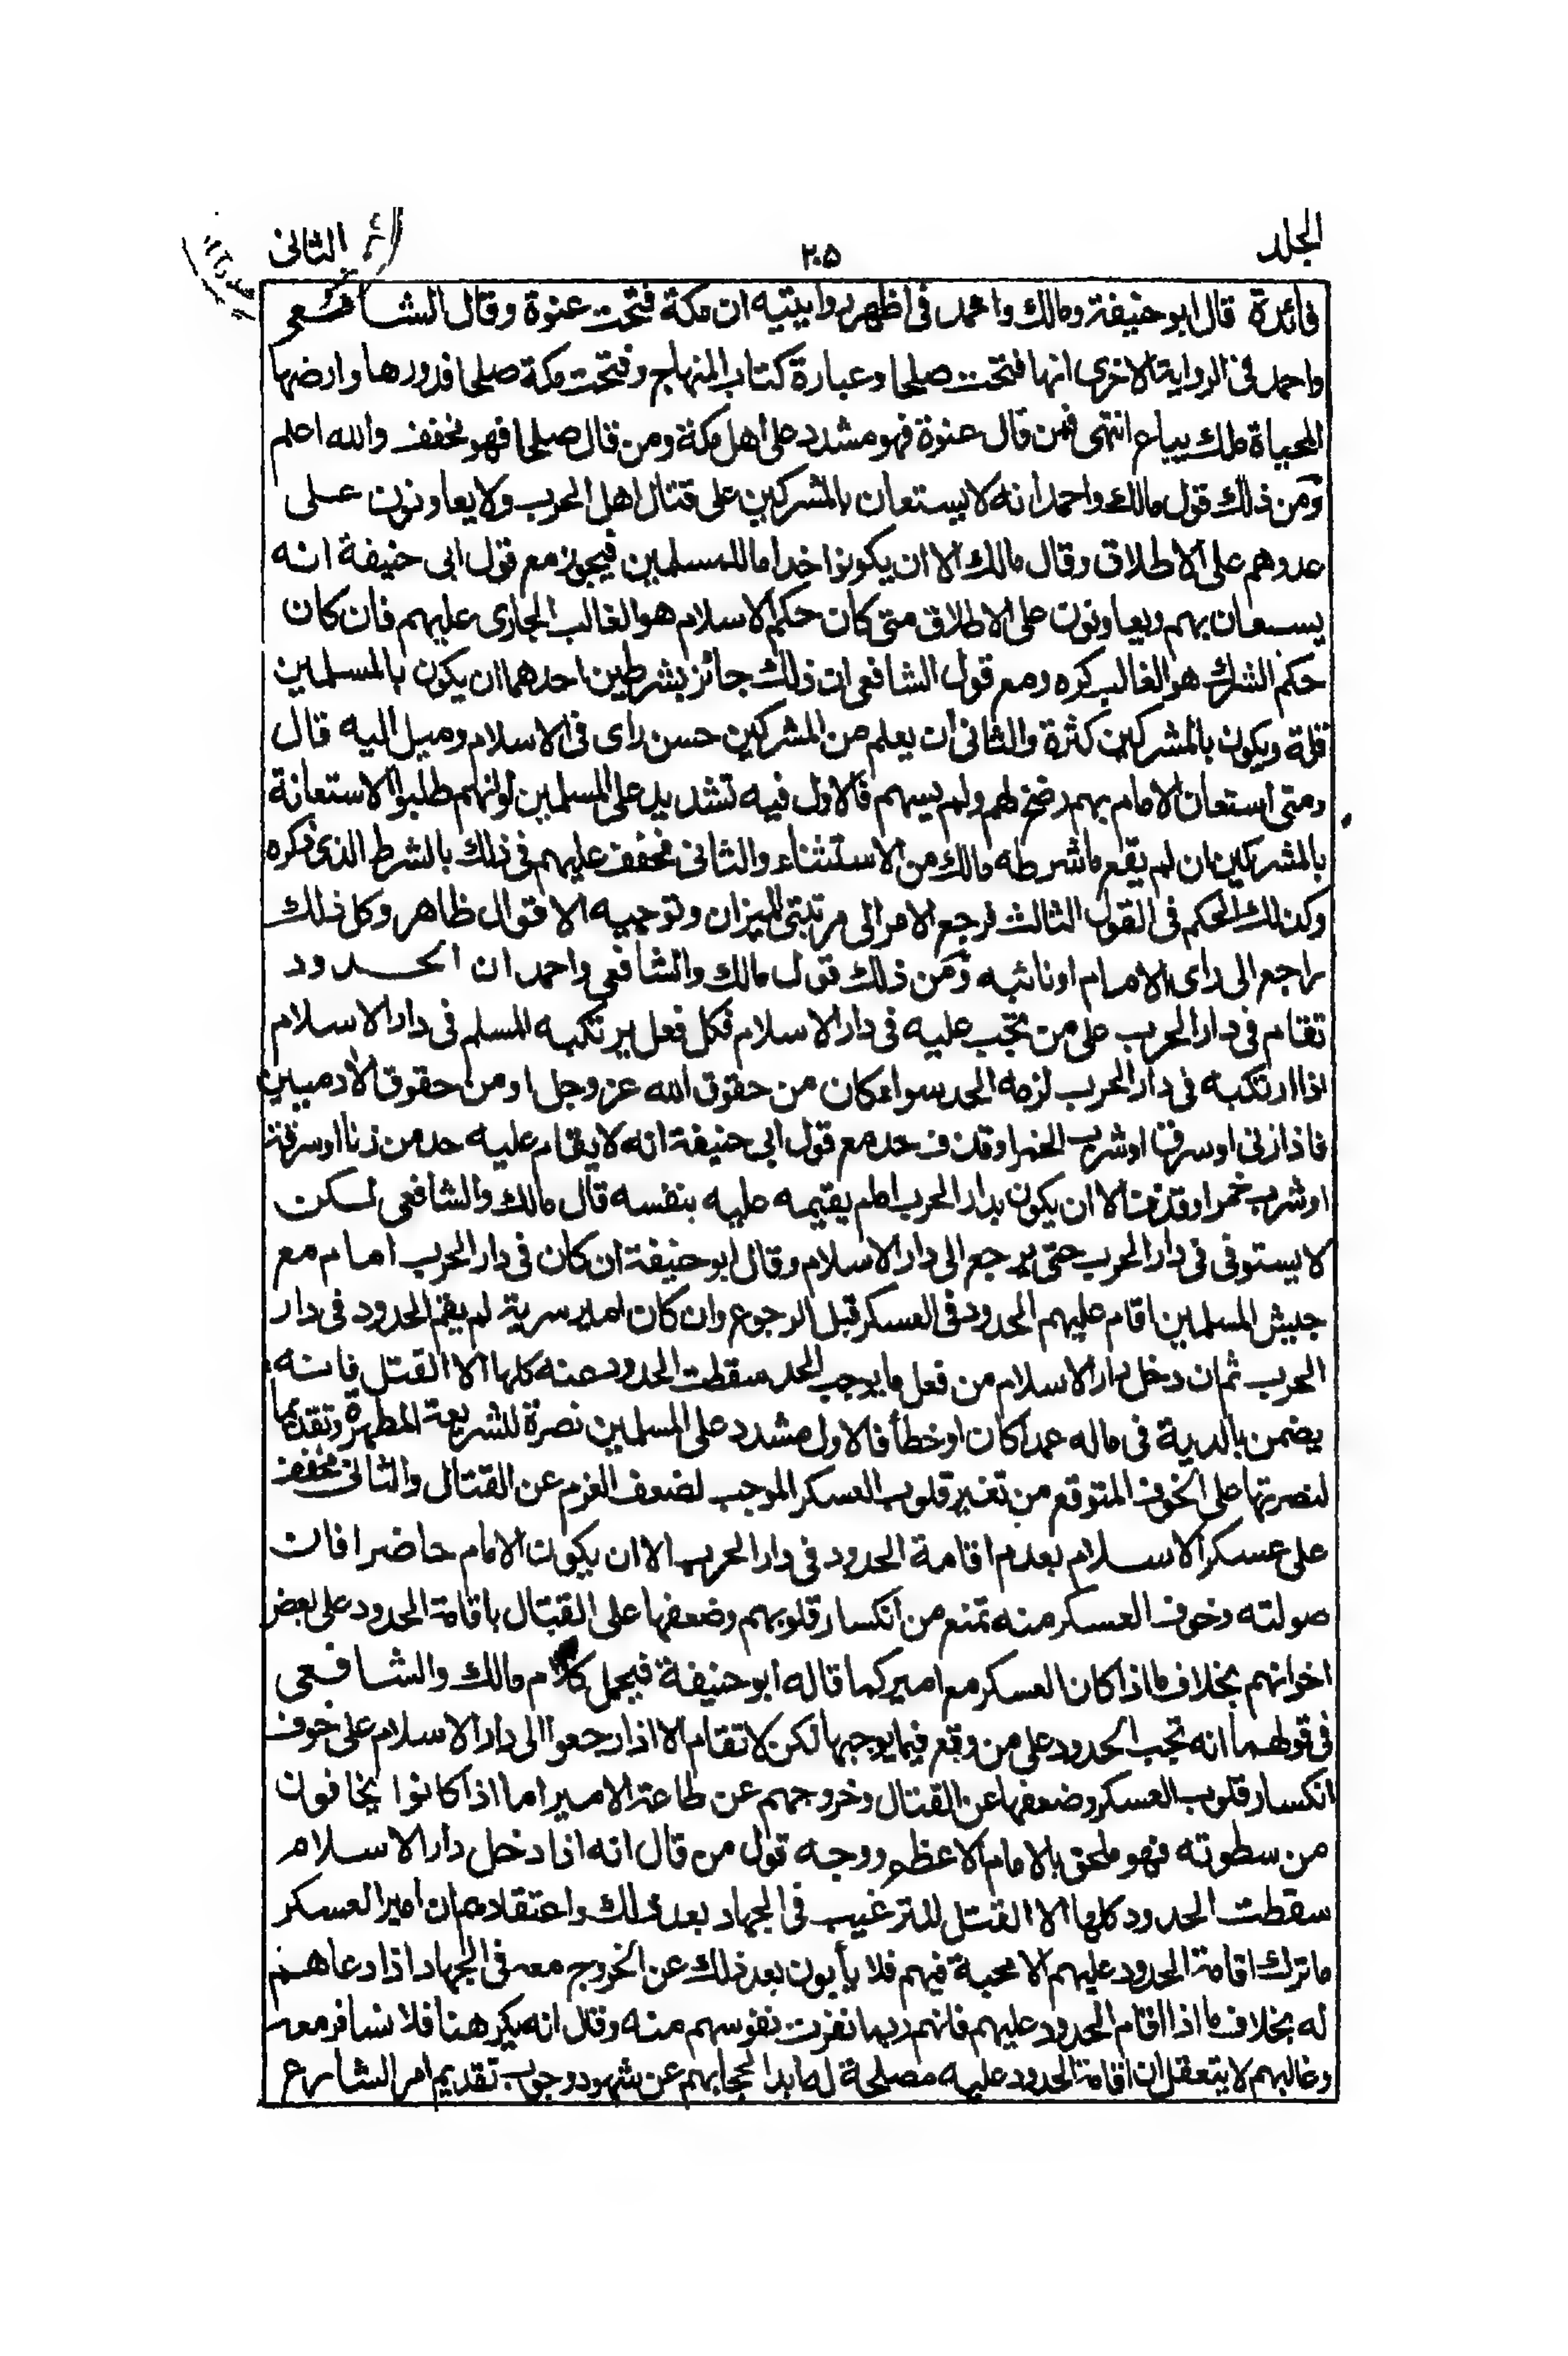 الجلد ٢٠٥ الثانى
فائدة قال ابو حنيفة ومالك واحمد فى اظهر روايتيه ان مكة فتحت عنوة وقال الشافعى
واحمد فى الرواية الاخرى انها فتحت صلحا وعبارة كتاب المنهاج وفتحت مكة صلحا فدورها وارضها
المحياة ملك يباع انتهى فمن قال عنوة فهو مشدد على اهل مكة ومن قال صلحا فهو مخفف والله اعلم
ومن ذلك قول مالك واحمد انه لا يستعان بالمشركين على قتال اهل الحرب ولا يعاونون على
عدوهم على الاطلاق وقال مالك الا ان يكونوا خداما للمسلمين فيجوز مع قول ابى حنيفة انه
يستعان بهم ويعاونون على الاطلاق متى كان حكم الاسلام هو الغالب الجارى عليهم فان كان
حكم الشرك هو الغالب كره ومع قول الشافعى ان ذلك جائز بشرطين احدهما ان يكون بالمسلمين
قلة ويكون بالمشركين كثرة والثانى ان يعلم من المشركين حسن راى فى الاسلام وميل اليه قال
ومتى استعان الامام بهم رضخ لهم ولم يسهم فالاول فيه تشديد على المسلمين لو انهم طلبوا الاستعانة
بالمشركين ان لم يقع ما شرطه مالك من الاستثناء والثانى مخفف عليهم فى ذلك بالشرط الذى ذكره
وكذلك الحكم فى القول الثالث فرجع الامر الى مرتبتى الميزان وتوجيه الاقوال ظاهر وكل ذلك
راجع الى راى الامام او نائبه ومن ذلك قول مالك والشافعى واحمد ان الحدود
تقام فى دار الحرب على من تجب عليه فى دار الاسلام فكل فعل يرتكبه المسلم فى دار الاسلام
اذا ارتكبه فى دار الحرب لزمه الحد سواء كان من حقوق الله عز وجل او من حقوق الآدميين
فاذا زنى او سرق او شرب الخمر او قذف حد مع قول ابى حنيفة انه لا يقام عليه حد من زنا او سرقة
او شرب خمر او قذف الا ان يكون بدار الحرب امام يقيمه عليه بنفسه قال مالك والشافعى لكن
لا يستوفى فى دار الحرب حتى يرجع الى دار الاسلام وقال ابو حنيفة ان كان فى دار الحرب امام مع
جيش المسلمين اقام عليهم الحدود فى العسكر قبل الرجوع وان كان امير سرية لم يقم الحدود فى دار
الحرب ثم ان دخل دار الاسلام من فعل ما يوجب الحد سقطت الحدود عنه كلها الا القتل فانه
يضمن بالدية فى ماله عمدا كان او خطأ فالاول مشدد على المسلمين نصرة للشريعة المطهرة وتقديما
لنصرتها على الخوف المتوقع من تغير قلوب العسكر الموجب لضعف العزم عن القتال والثانى مخفف
على عسكر الاسلام بعدم اقامة الحدود فى دار الحرب الا ان يكون الامام حاضرا فان
صولته وخوف العسكر منه تمنع من انكسار قلوبهم وضعفها على القتال باقامة الحدود على بعض
اخوانهم بخلاف ما اذا كان العسكر مع امير كما قاله ابو حنيفة فيحمل كلام مالك والشافعى
فى قولهما انه تجب الحدود على من وقع فيما يوجبها لكن لا تقام الا اذا رجعوا الى دار الاسلام على خوف
انكسار قلوب العسكر وضعفها عن القتال وخروجهم عن طاعة الامير اما اذا كانوا يخافون
من سطوته فهو ملحق بالامام الاعظم ووجه قول من قال انه اذا دخل دار الاسلام
سقطت الحدود كلها الا القتل للترغيب فى الجهاد بعد ذلك واعتقادهم ان امير العسكر
ما ترك اقامة الحدود عليهم الا محبة فيهم فلا يأبون بعد ذلك عن الخروج معه فى الجهاد اذا دعاهم
له بخلاف ما اذا اقام الحدود عليهم فانهم ربما نفرت نفوسهم منه وقال انه يكرهنا فلا نسافر معه
وغالبهم لا يتعقل ان اقامة الحدود عليه مصلحة له ابدا لحجابهم عن شهود وجوب تقديم امر الشارع